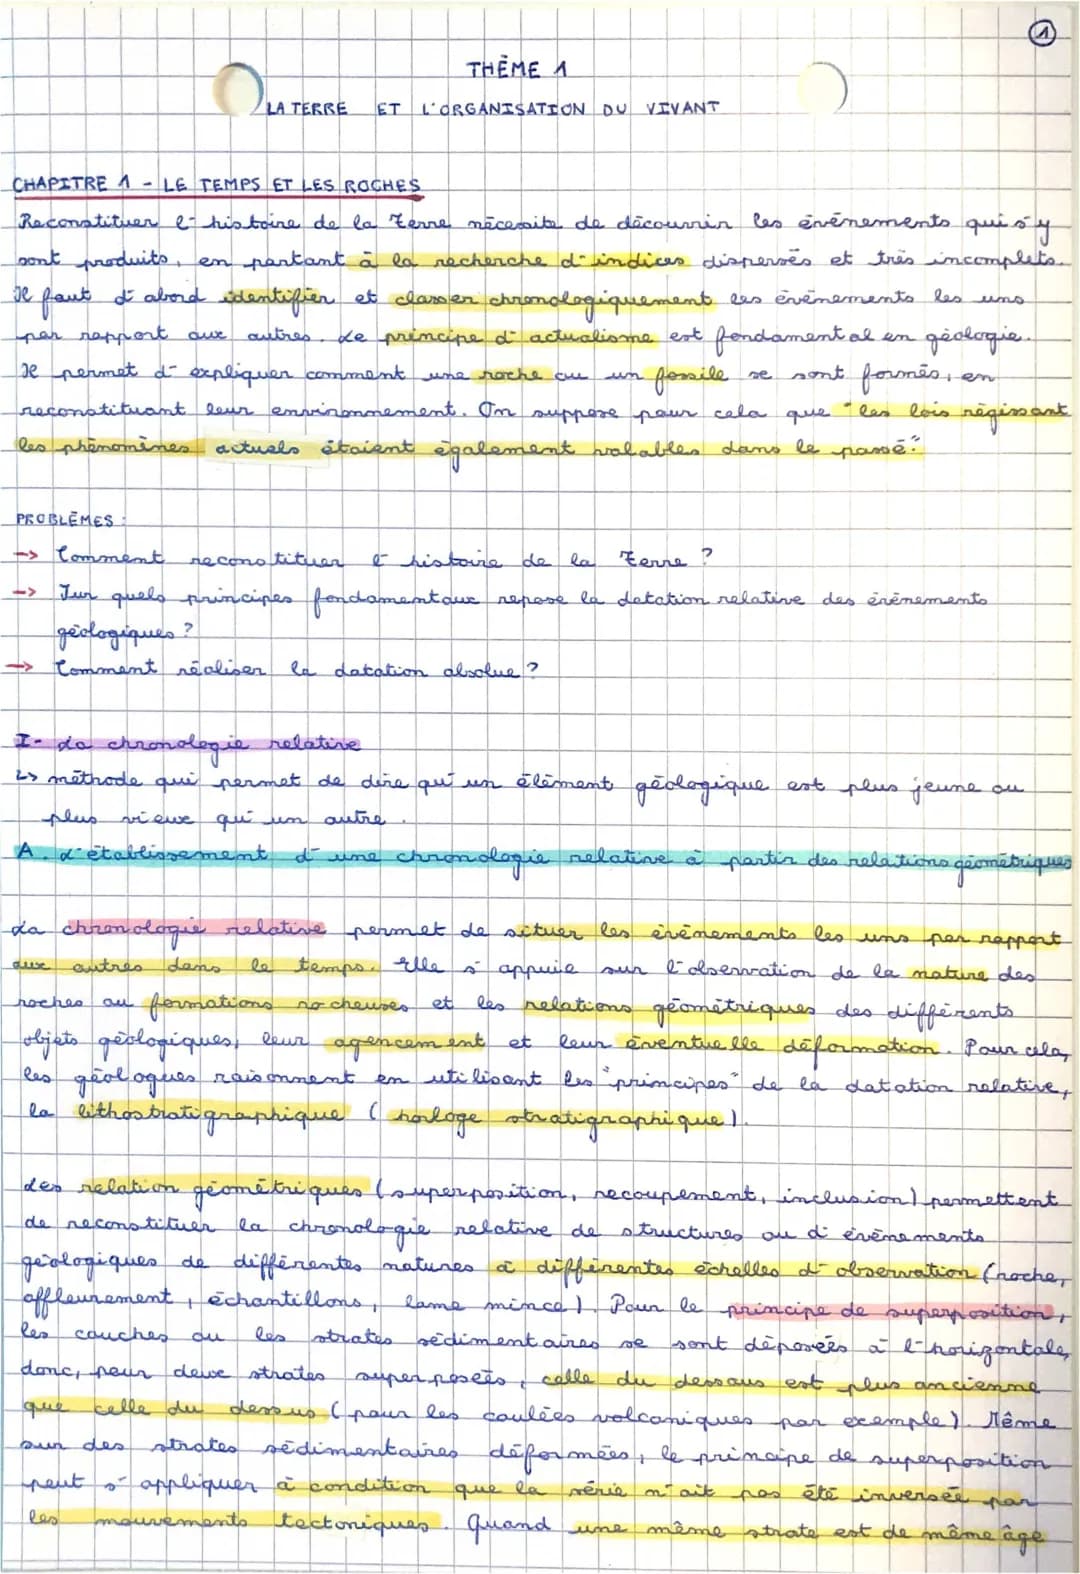 1
THÈME 1
LA TERRE ET L'ORGANISATION DU VIVANT
CHAPITRE 1 - LE TEMPS ET LES ROCHES
Reconstituer l'histoire de la Terre nécessite de découvrir les évènements qui s'y
sont produits, en partant à la recherche d'indices dispersés et très incomplets.
Il faut d'abord identifier et classer chronologiquement les évènements les uns
par rapport aux autres. Le principe d'actualisme est fondamental en géologie.
Il permet d'expliquer comment une roche ou un fossile se sont formés, en
reconstituant leur environnement. On suppose pour cela que "les lois régissant
les phénomènes actuels étaient également valables dans le passé".
PROBLÈMES :
--> Comment reconstituer l'histoire de la Terre ?
--> Sur quels principes fondamentaux repose la datation relative des évènements
géologiques ?
--> Comment réaliser la datation absolue ?
I- La chronologie relative
↳ méthode qui permet de dire qu'un élément géologique est plus jeune ou
plus vieux qu'un autre.
A. L'établissement d'une chronologie relative à partir des relations géométriques
La chronologie relative permet de situer les évènements les uns par rapport
aux autres dans le temps. Elle s'appuie sur l'observation de la nature des
roches ou formations rocheuses et les relations géométriques des différents
objets géologiques, leur agencement et leur éventuelle déformation. Pour cela,
les géologues raisonnent en utilisant les "principes" de la datation relative,
la lithostratigraphique (horloge stratigraphique).
Les relation géométriques (superposition, recoupement, inclusion) permettent
de reconstituer la chronologie relative de structures ou d'évènements
géologiques de différentes natures à différentes échelles d'observation (roche,
affleurement, échantillons, lame mince). Pour le principe de superposition,
les couches ou les strates sédimentaires se sont déposées à l'horizontale,
donc, pour deux strates superposées, celle du dessous est plus ancienne
que celle du dessus (pour les coulées volcaniques par exemple). Même
sur des strates sédimentaires déformées, le principe de superposition
peut s'appliquer à condition que la série n'ait pas été inversée par
les mouvements tectoniques. Quand une même strate est de même âge